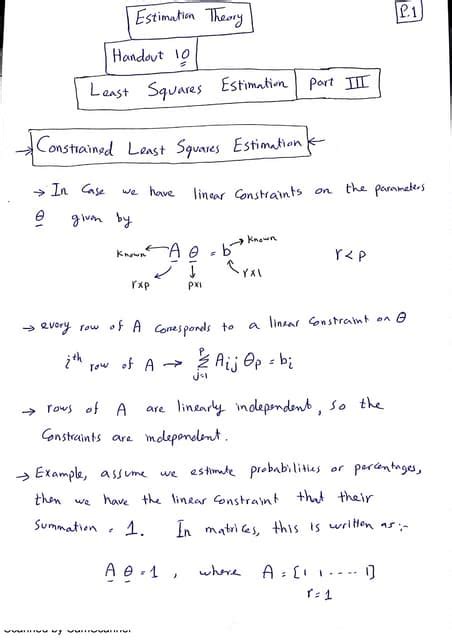 Estimation Theory
P.1
Handout 10
Least Squares Estimation | Part III
→ Constrained Least Squares Estimation ←
→ In Case we have linear Constraints on the parameters
θ given by
Known ← A θ = b → Known
r×p p×1 r×1 r<p
→ every row of A Corresponds to a linear Constraint on θ
ith row of A → Σ_{j=1}^{P} Aij θp = bi
→ rows of A are linearly independent, so the
Constraints are independent.
→ Example, assume we estimate probabilities or percentages,
then we have the linear Constraint that their
Summation = 1. In matrices, this is written as:-
A θ = 1 , where A = [1 1 ---- 1]
r = 1
Scanned by CamScanner